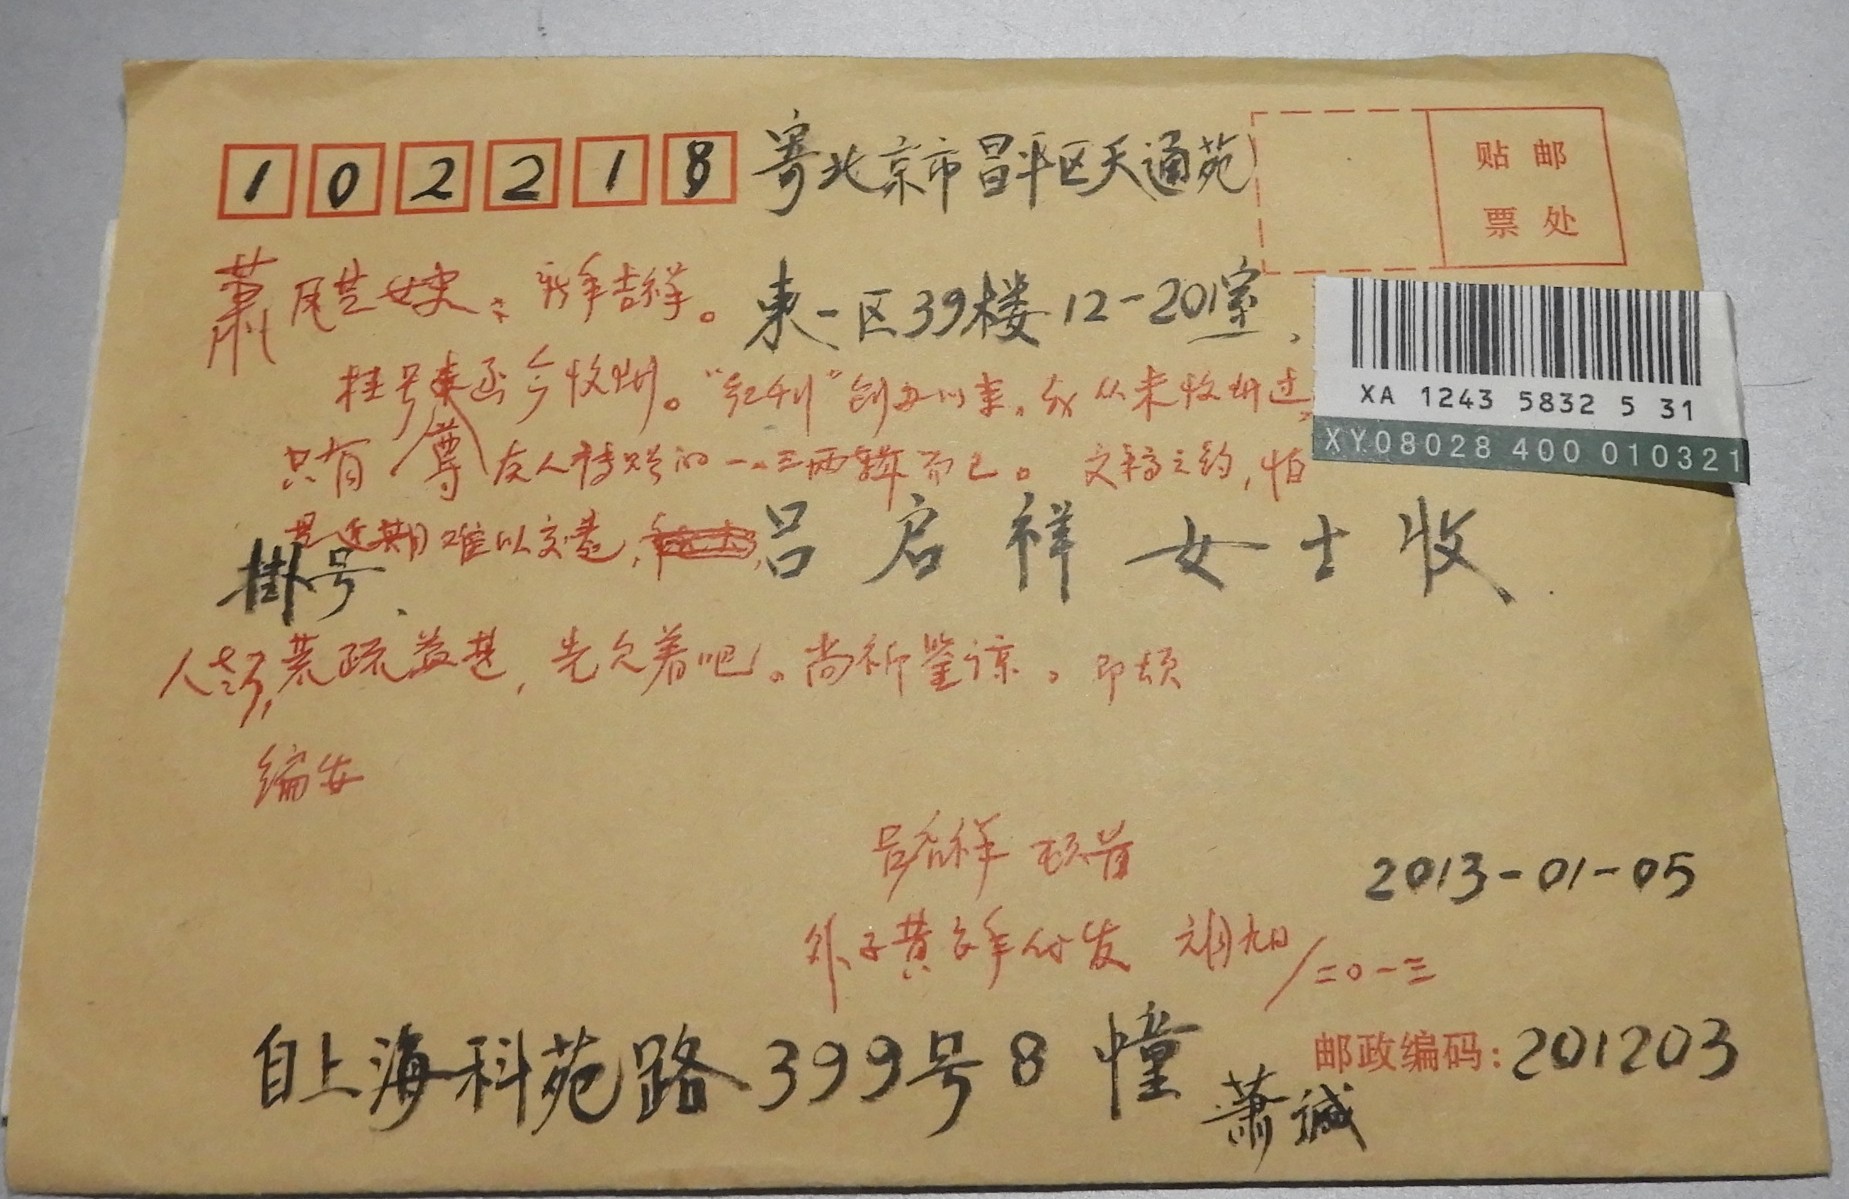 102218 寄北京市昌平区天通苑
贴邮
票处
萧凤芝女史：新年吉祥。
东一区39楼12-201室、
XA 1243 5832 5 31
XY08028 400 010321
挂号来函今收到。“红刊”创办以来，我从未收到过，
只有尊友人转赠的一、三两辑而已。文稿之约，怕
是近期难以交卷，
吕启祥女士收
掛号、
人老了，荒疏益甚，先欠着吧。尚祈鉴谅。即颂
编安
吕启祥 顿首
2013-01-05
外子黄安年代发 元月九日/二〇一三
自上海科苑路399号8幢
萧诚
邮政编码：201203